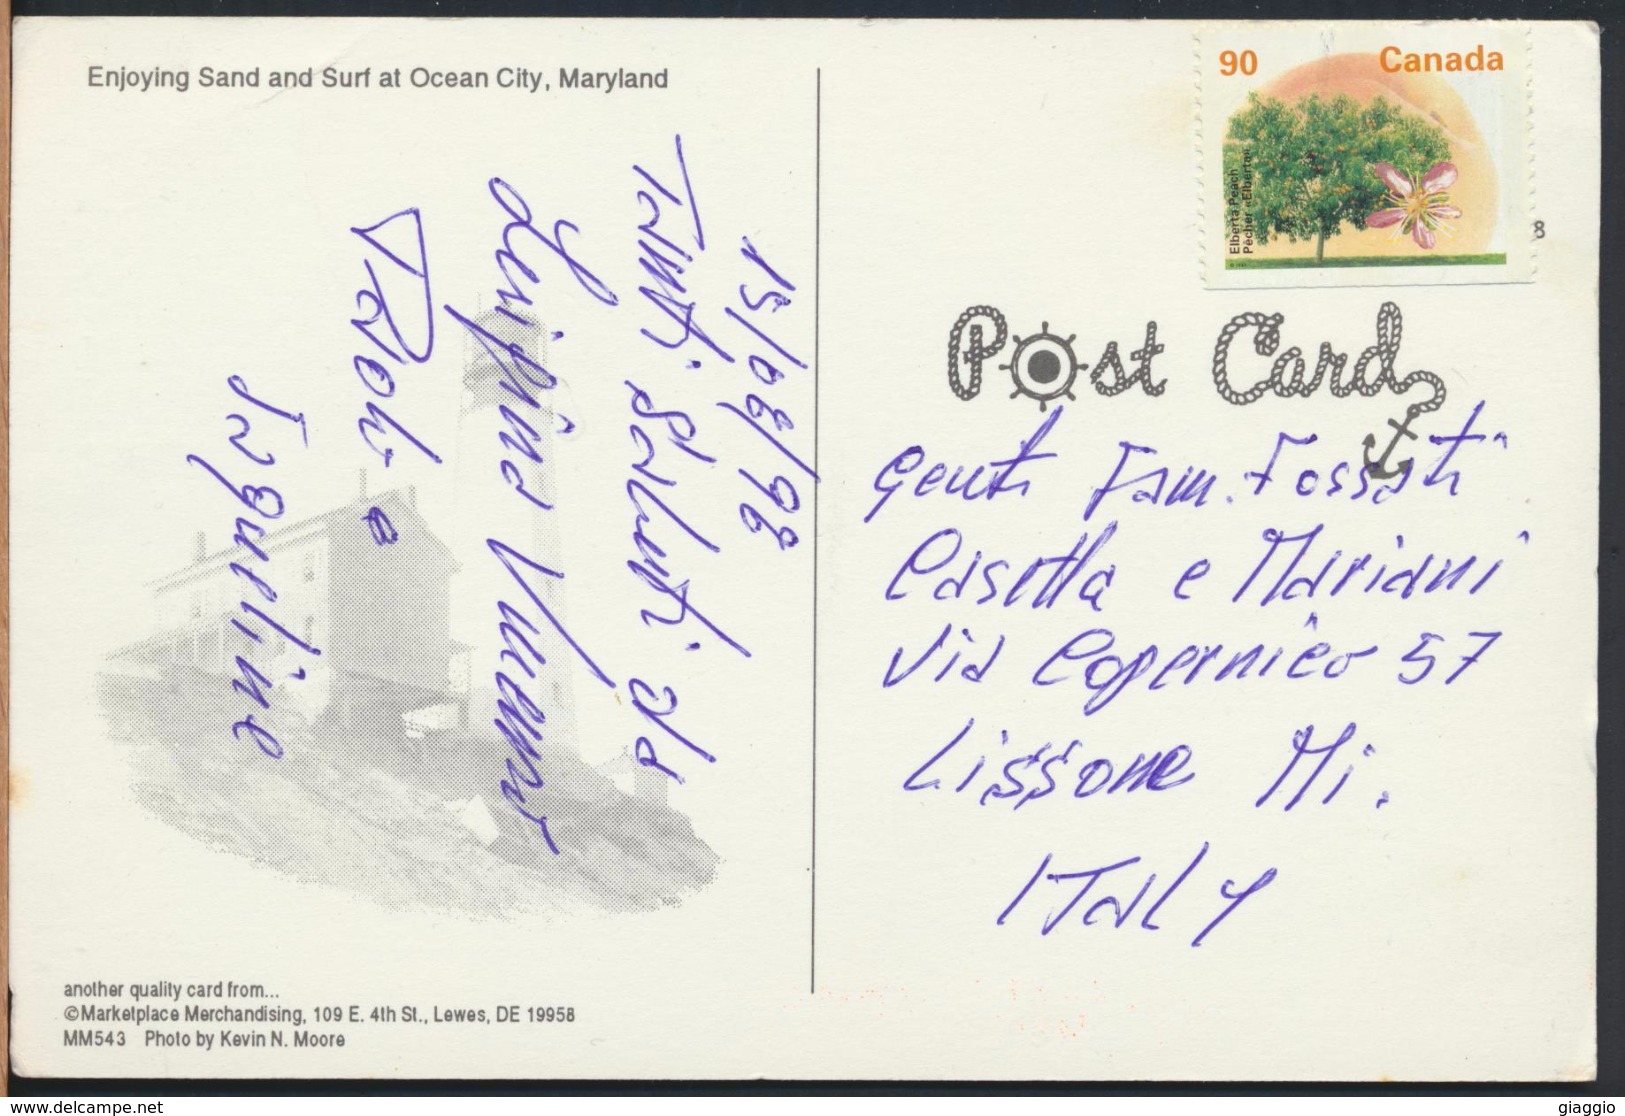 Enjoying Sand and Surf at Ocean City, Maryland
15/08/98
Tanti Saluti da
Vincenzo
Paolo e
Jaqueline
another quality card from...
©Marketplace Merchandising, 109 E. 4th St., Lewes, DE 19958
MM543 Photo by Kevin N. Moore
90 Canada
Elberta Peach
Pêcher «Elberta»
8
Post Card
Gent. Fam. Fossati
Casetta e Mariani
Via Copernico 57
Lissone Mi.
ITALY
giaggio